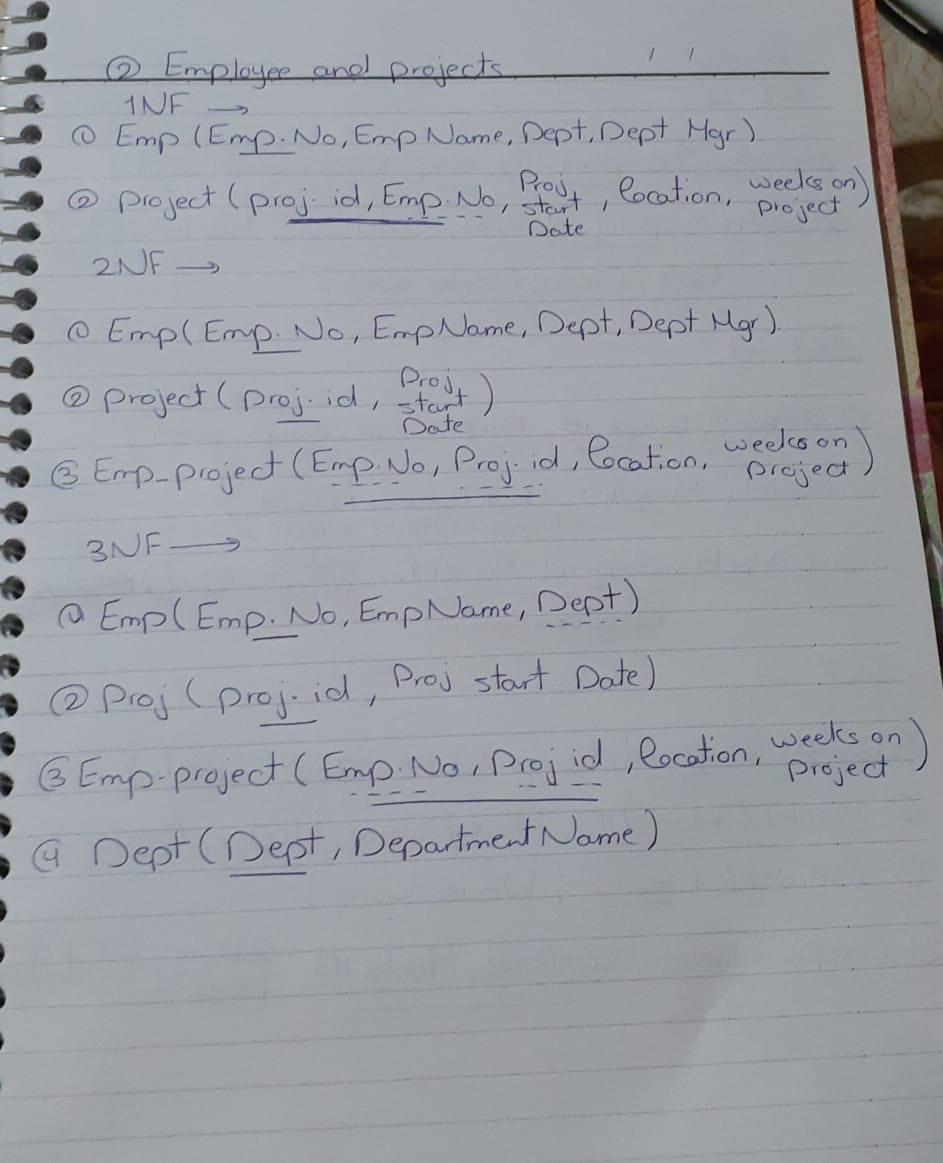 ② Employee and projects / /
1NF →
① Emp (Emp. No, Emp Name, Dept, Dept Mgr)
② project ( proj. id, Emp. No, Proj start Date, location, weeks on project)
2NF →
① Emp( Emp. No, EmpName, Dept, Dept Mgr).
② project ( proj. id, Proj start Date)
③ Emp_project (Emp. No, Proj. id, location, weeks on project)
3NF →
① Emp( Emp. No, EmpName, Dept)
② Proj ( proj. id, Proj start Date)
③ Emp-project ( Emp. No, Proj id, location, weeks on project)
④ Dept (Dept, Department Name)